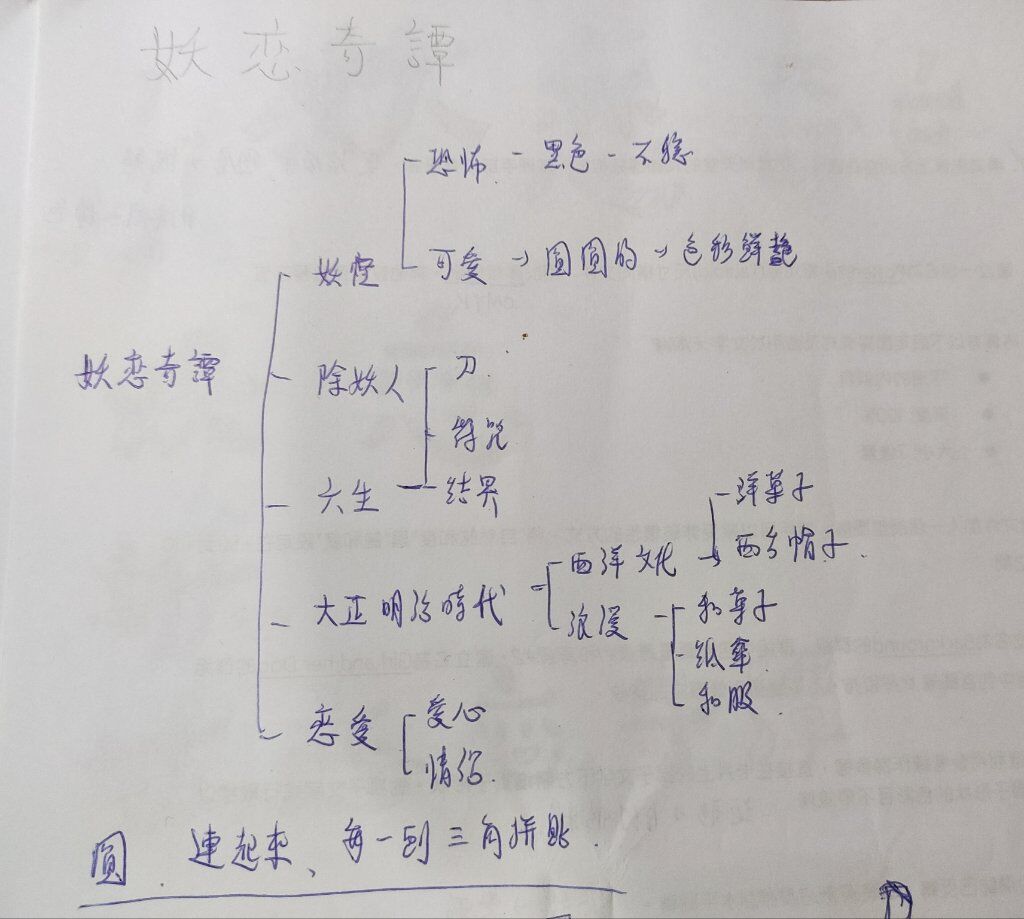 妖恋奇譚
恐怖 - 黑色 - 不稳
可爱 → 圓圓的 → 色彩鮮艷
妖怪
妖恋奇譚
除妖人
刀
符咒
六生
结界
大正明治時代
西洋文化
洋菓子
西方帽子
浪漫
和菓子
纸傘
和服
恋爱
爱心
情侣
圓 連起來、每一到三角拼貼